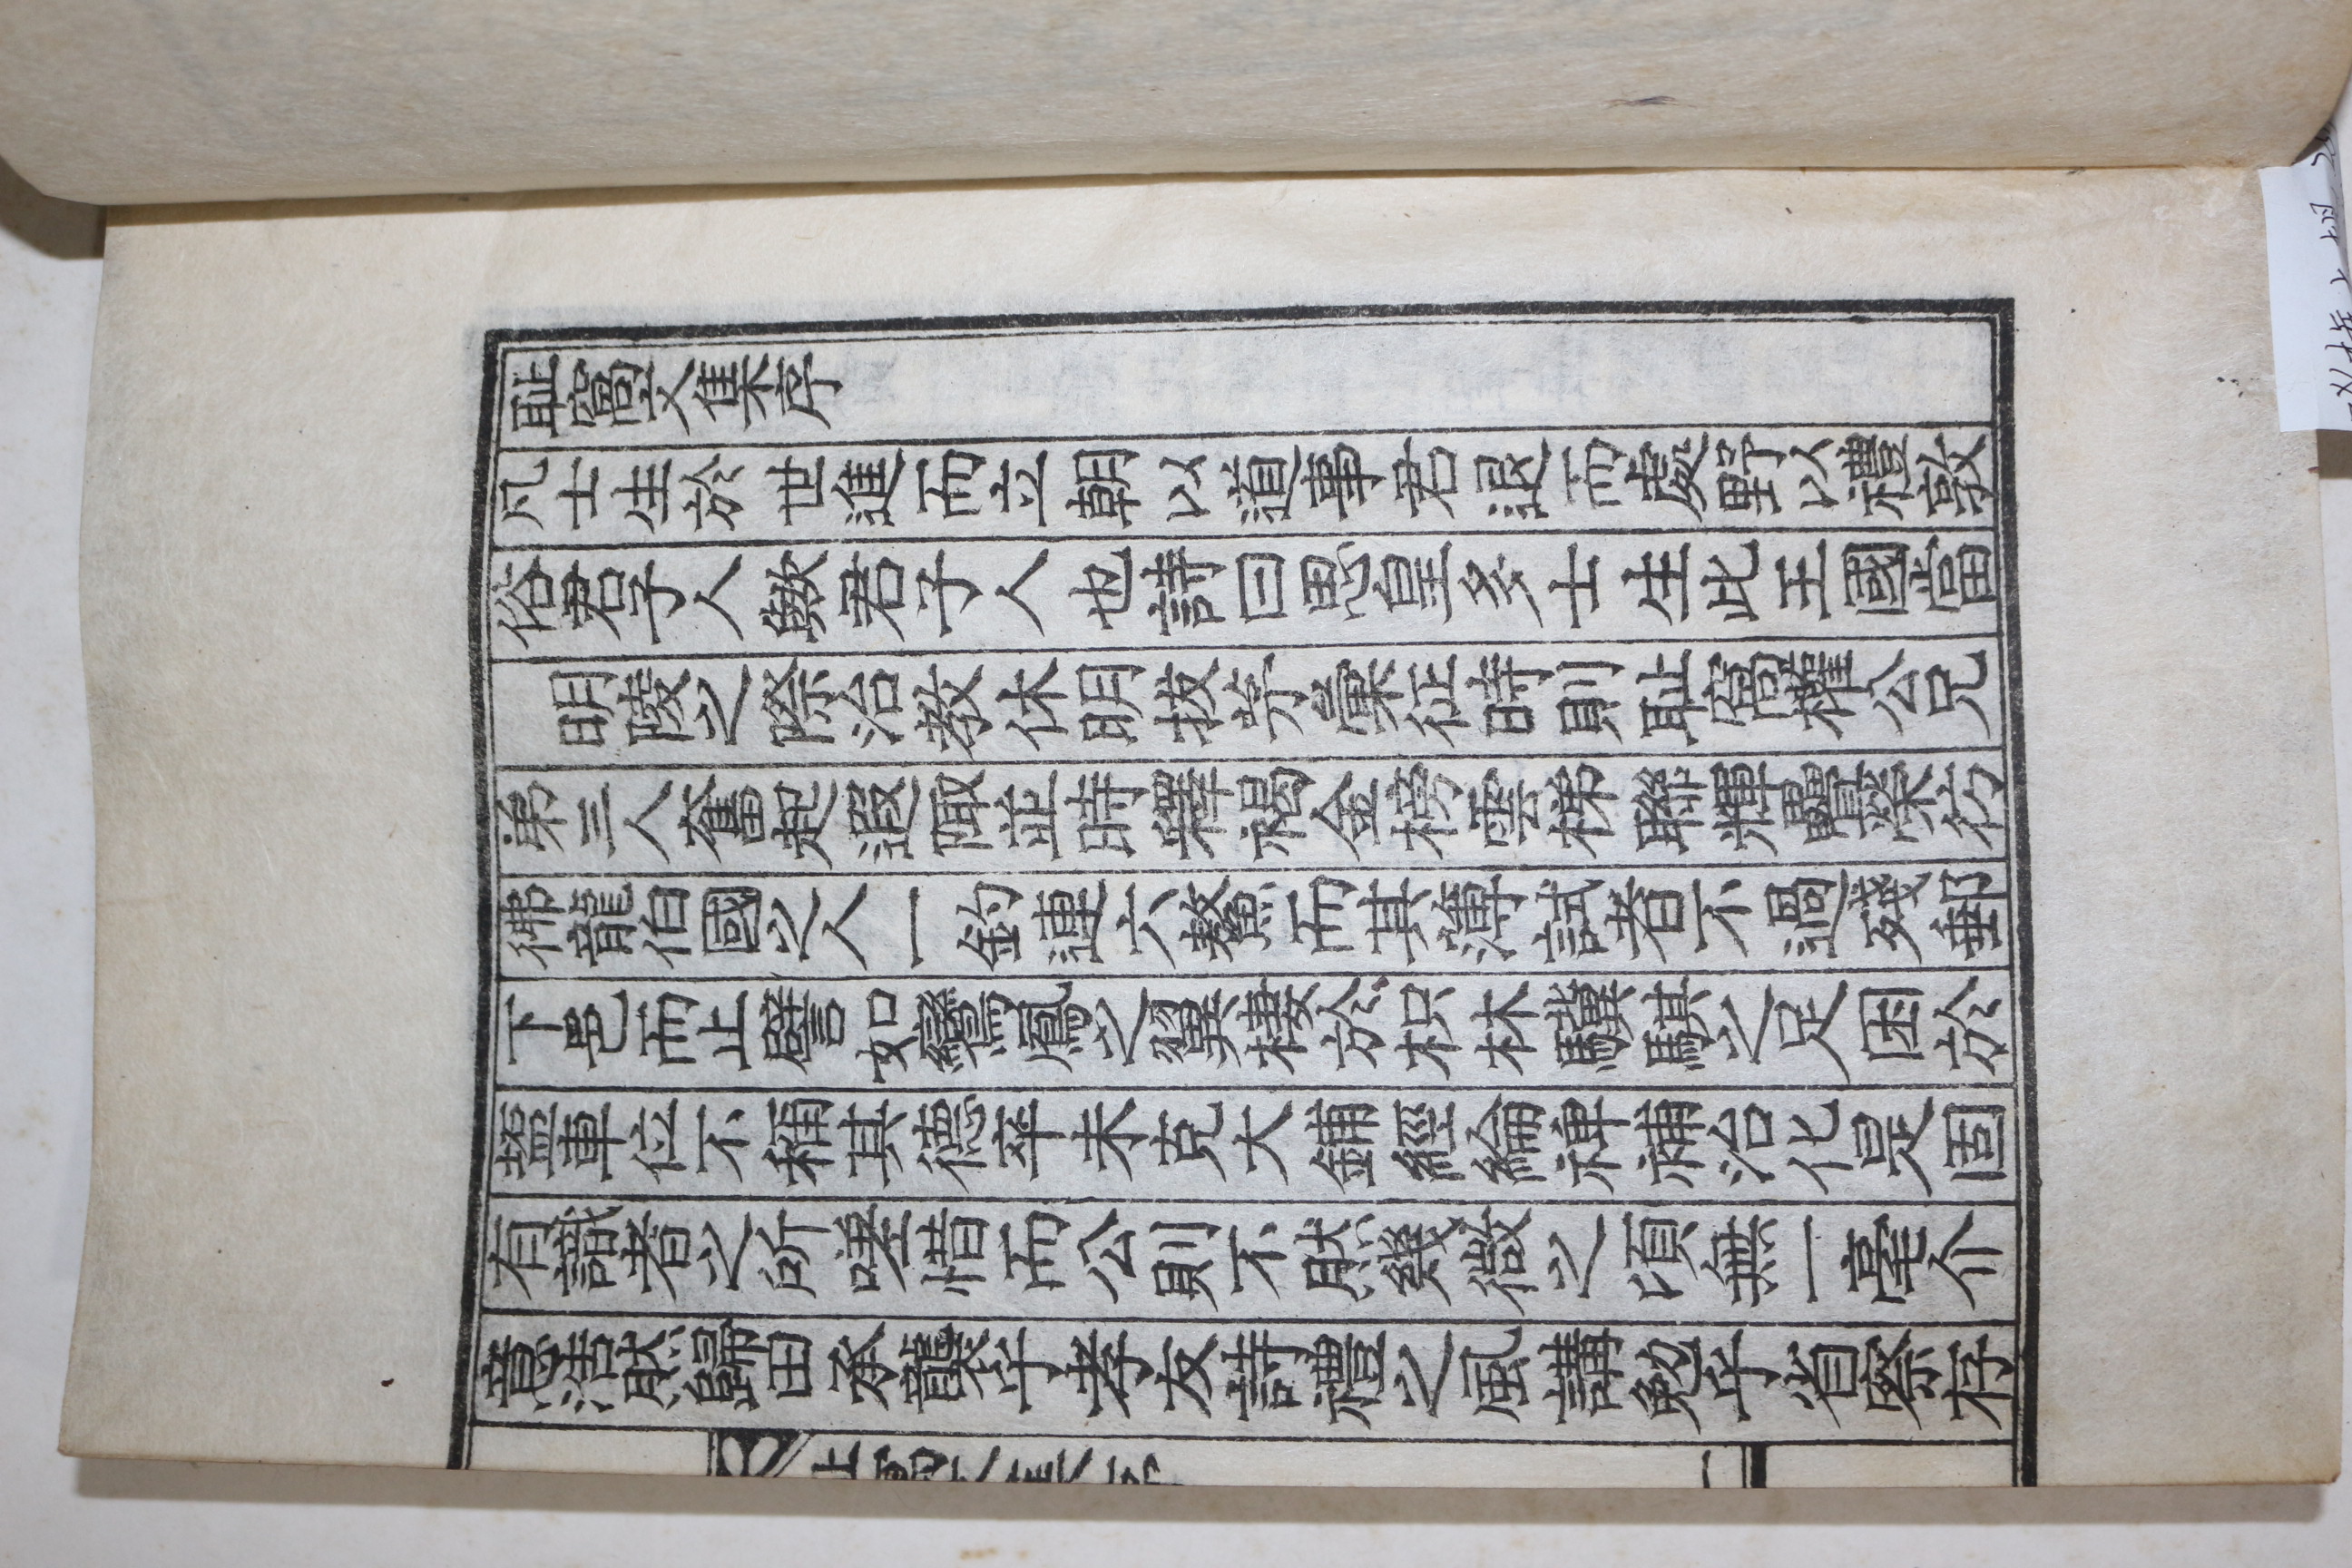 耻窩文集序
凡士生於世進而立朝以道事君退而處野以禮敦
俗君子人歟君子人也詩曰思皇多士生此王國當
明陵之際治教休明拔茅彙征時則耻窩權公兄
弟三人奮起遐陬並時釋褐金榜雲梯聯輝疊榮彷
彿龍伯國之人一釣連六鰲而其薄試者不過殘郵
下邑而止譬如鸞鳳之翼棲於枳林驥騏之足困於
盐車位不稱其德卒未克大鋪經綸裨補治化是固
有識者之所嗟惜而公則不然幾微之頃無一毫介
意浩然歸田承襲乎孝友詩禮之風講勉乎省察存